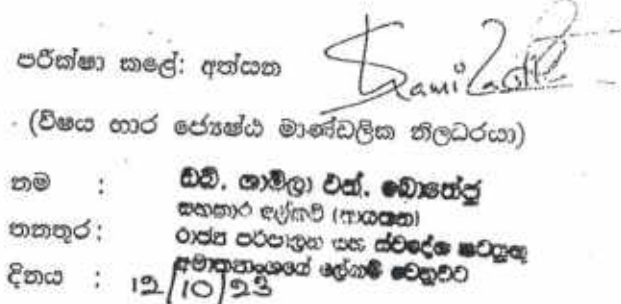 පරීක්ෂා කළේ: අත්සන
(විෂය භාර ජ්‍යෙෂ්ඨ මාණ්ඩලික නිලධරයා)
නම : ඩබ්. ශාමිලා එන්. බොතේජු
සහකාර ලේකම් (ආයතන)
තනතුර : රාජ්‍ය පරිපාලන සහ ස්වදේශ කටයුතු
අමාත්‍යාංශයේ ලේකම් වෙනුවට
දිනය : 12/10/23